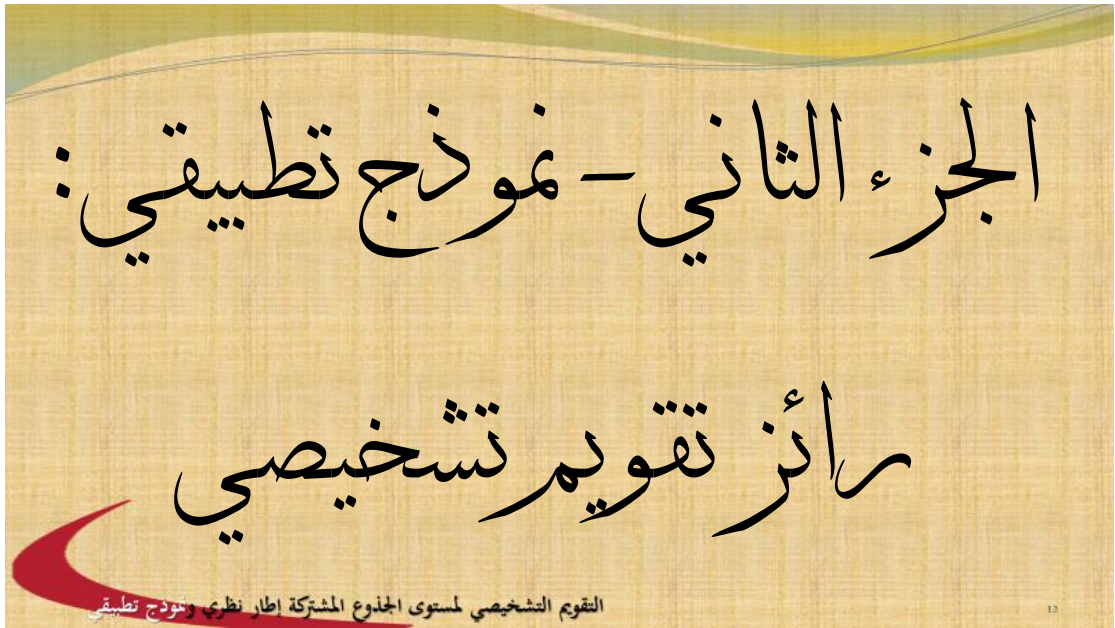 الجزء الثاني – نموذج تطبيقي:
رائز تقويم تشخيصي
التقويم التشخيصي لمستوى الجذوع المشتركة إطار نظري ونموذج تطبيقي
12